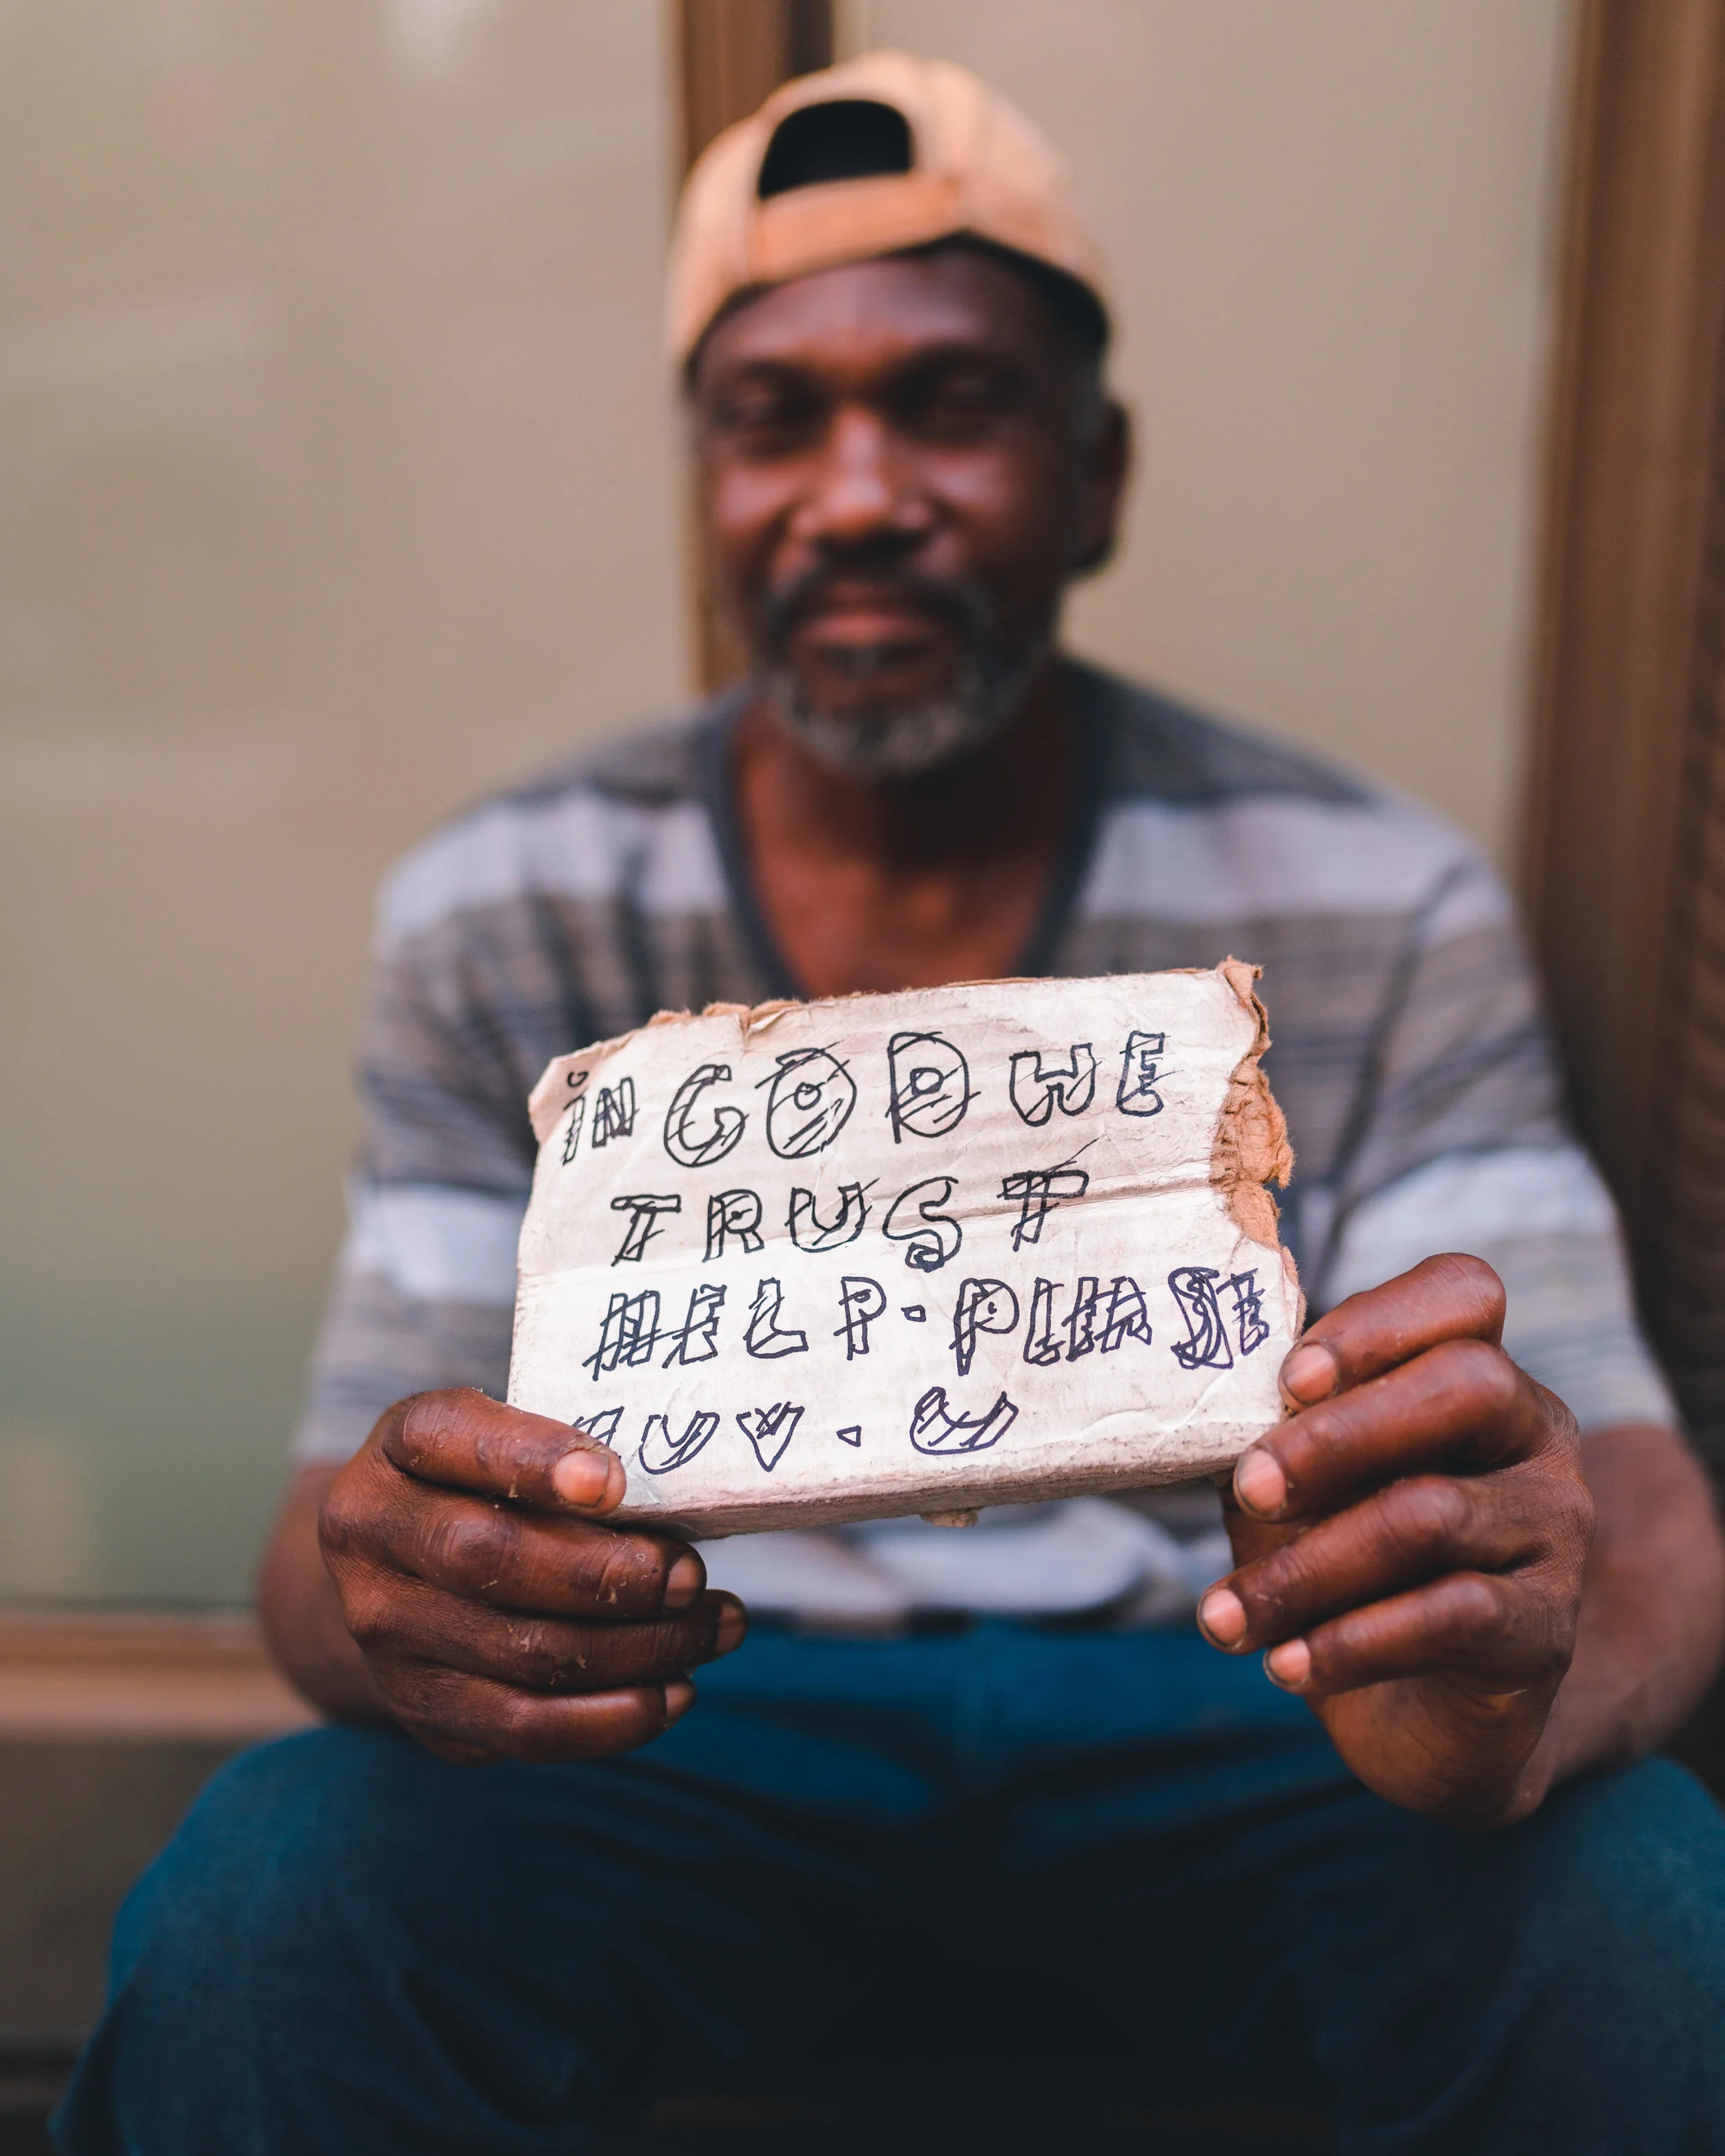 iN GOD WE
TRUST
HELP. PLEASE